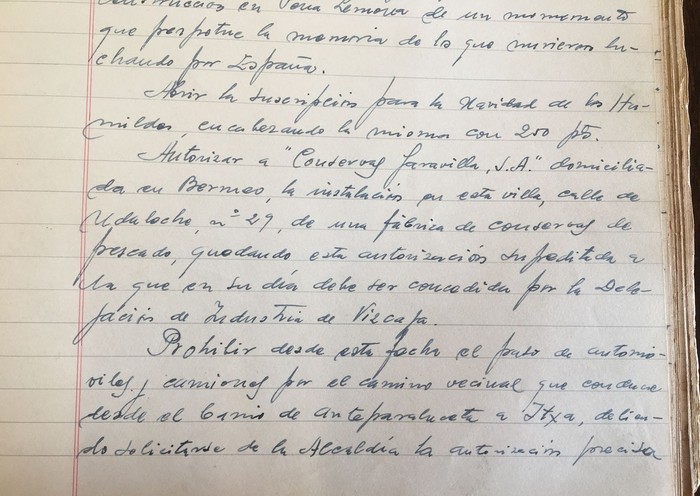 construcción en Peña Lemona de un monumento
que perpetue la memoria de los que murieron lu-
chando por España.
Abrir la suscripción para la Navidad de los Hu-
mildes, encabezando la misma con 250 pts.
Autorizar a "Conservas Garavilla, S.A." domicilia-
da en Bermeo, la instalación en esta villa, calle de
nº 29, de una fábrica de conservas de
pescado, quedando esta autorización supeditada a
la que en su día debe ser concedida por la Dele-
gación de Industria de Vizcaya.
Prohibir desde esta fecha el paso de automó-
viles y camiones por el camino vecinal que conduce
desde el barrio de a Itxa, debien-
do solicitarse de la Alcaldía la autorización precisa